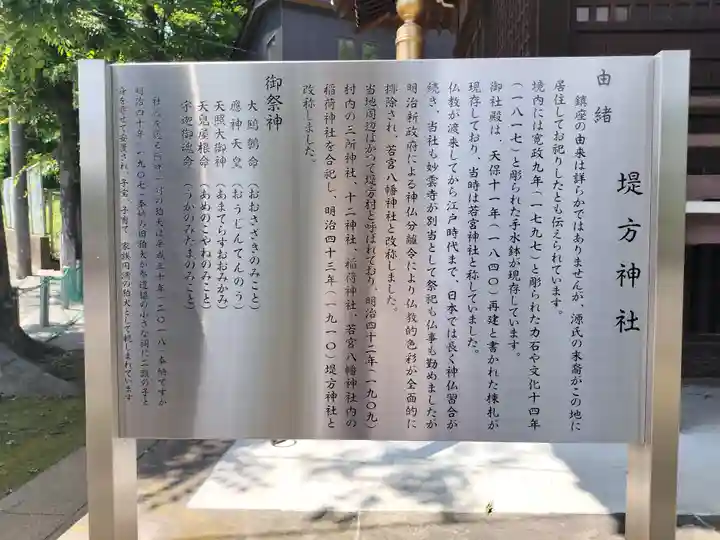 堤方神社
由緒
鎮座の由来は詳らかではありませんが、源氏の末裔がこの地に
居住してお祀りしたとも伝えられています。
境内には寛政九年(一七九七)と彫られた力石や文化十四年
(一八一七)と彫られた手水鉢が現存しています。
御社殿は、天保十一年(一八四〇)再建と書かれた棟札が
現存しており、当時は若宮神社と称していました。
仏教が渡来してから江戸時代まで、日本では長く神仏習合が
続き、当社も妙雲寺が別当として祭祀も仏事も勤めましたが
明治新政府による神仏分離令により仏教的色彩が全面的に
排除され、若宮八幡神社と改称しました。
当地周辺はかつて堤方村と呼ばれており、明治四十二年(一九〇九)
村内の三所神社、十二神社、稲荷神社、若宮八幡神社内の
稲荷神社を合祀し、明治四十三年(一九一〇)堤方神社と
改称しました。
御祭神
大鷦鷯命(おおささぎのみこと)
應神天皇(おうじんてんのう)
天照大御神(あまてらすおおみかみ)
天兒屋根命(あめのこやねのみこと)
宇迦御魂命(うかのみたまのみこと)
狛犬は平成三十年(二〇一八)奉納ですが
明治四十年(一九〇七)奉納の旧狛犬が参道脇の小さな祠に二頭の子と
身を寄せて安置され、子宝、子育て、家族円満の狛犬として親しまれています